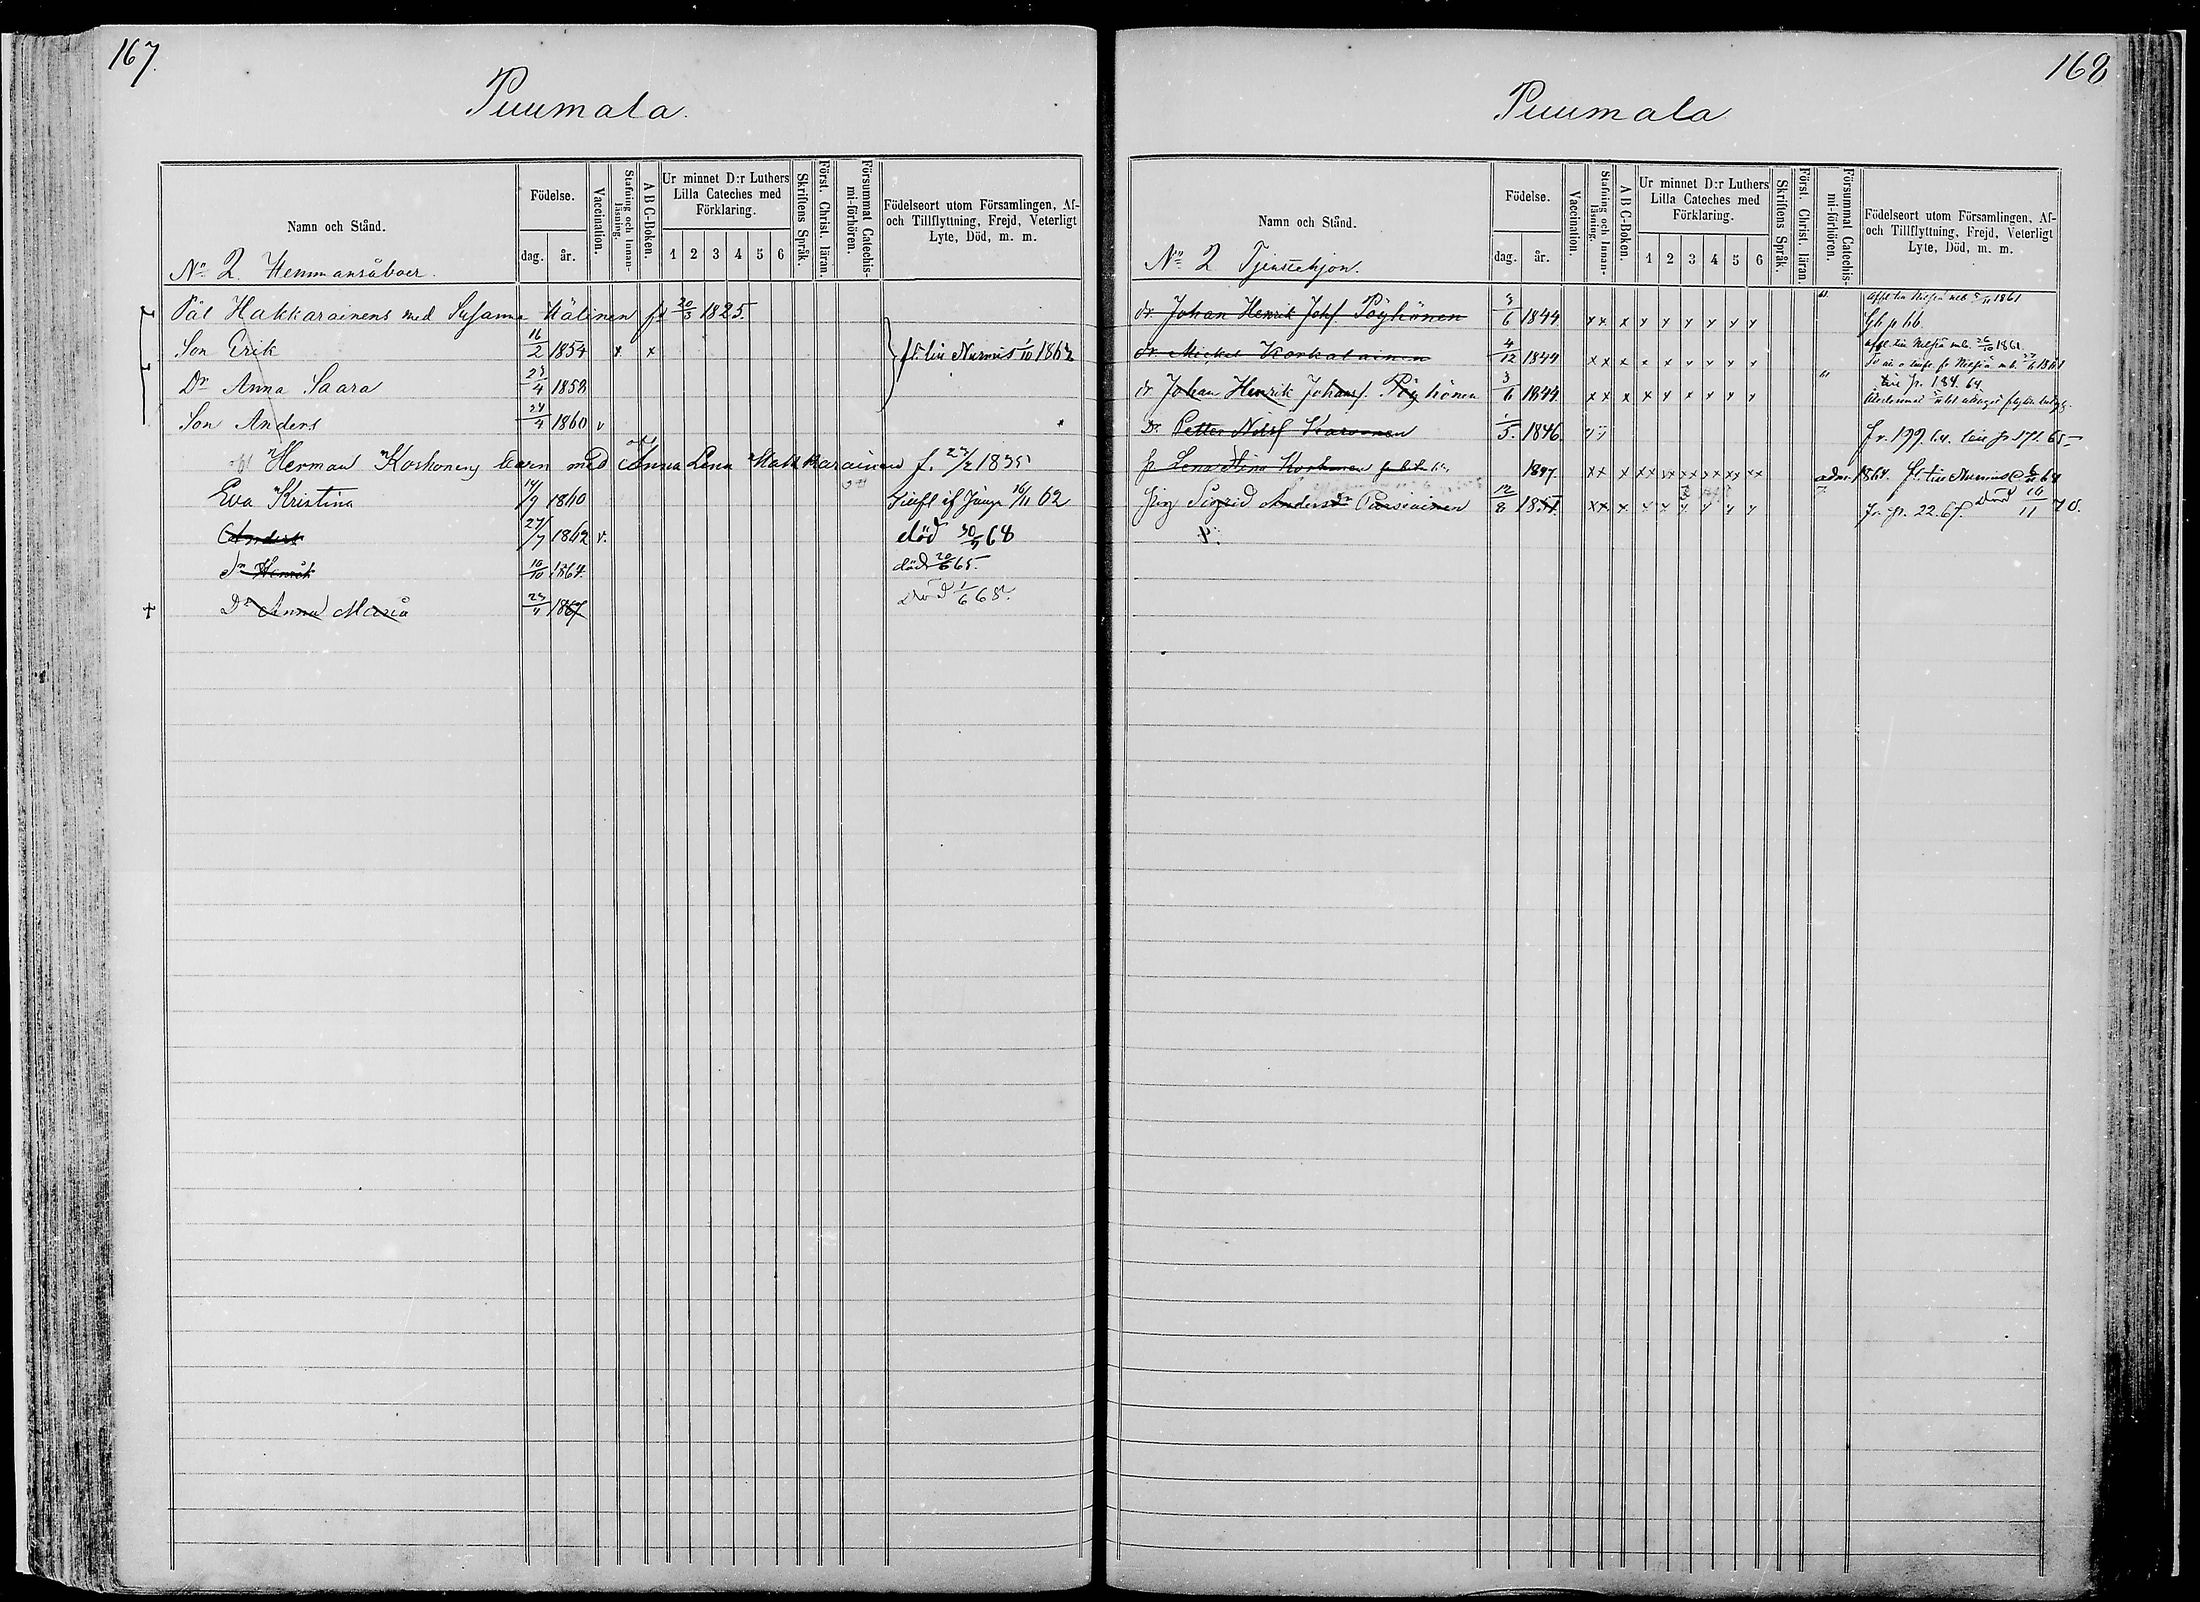 167.
Puumala.
Namn och Stånd.
Födelse.
dag. år.
Vaccination.
Stafning och Innan-läsning.
A B C-Boken.
Ur minnet D:r Luthers Lilla Cateches med Förklaring.
1 2 3 4 5 6
Skriftens Språk.
Först. Christ. läran.
Försummat Catechis-mi-förhören.
Födelseort utom Församlingen, Af- och Tillflyttning, Frejd, Veterligt Lyte, Död, m. m.
No 2 Hemmansåboer.
Pål Hakkarainens med Susanna Kälinen fd 20/3 1825.
Son Erik 16/2 1854 x x fl. till Nurmis 1/10 1862
Dr Anna Saara 23/4 1858
Son Anders 24/4 1860 v
Herman Korhonens barn med Anna Lena Hakkarainen f. 27/2 1835
Eva Kristina 14/9 1860 16/11 62
Anders 27/7 1862 v. död 30/5 68
Sn Henrik 10/10 1864. död 20/6 65.
+ Dr Anna Maria 23/4 1867 Död 1/6 68.
168
Puumala
Namn och Stånd.
Födelse.
dag. år.
Vaccination.
Stafning och Innan-läsning.
A B C-Boken.
Ur minnet D:r Luthers Lilla Cateches med Förklaring.
1 2 3 4 5 6
Skriftens Språk.
Först. Christ. läran.
Försummat Catechis-mi-förhören.
Födelseort utom Församlingen, Af- och Tillflyttning, Frejd, Veterligt Lyte, Död, m. m.
No 2 Tjenstehjon.
dr Johan Henrik Johs. Pöyhönen 3/6 1844 x x x x x x x x x 1861
dr Mickel Korkalainen 4/12 1844 x x x x x x x x x 1861.
dr Johan Henrik Johans. Pöyhönen 3/6 1844 x x x x x x x x x till p. 184. 64.
Dr Petter Nilsf Karvonen 1/5 1846 fr. 199. 64. till p 171. 65
p. Lena Stina Korhonen 1847. xx x xx xx xx xx xx xx adm. 1864. fl. till Nurmis 68
pig Sigrid Andersdr Parsiainen 12/8 1851. xx x x x x x x x fr. p. 22. 67. Död 16/11 70.